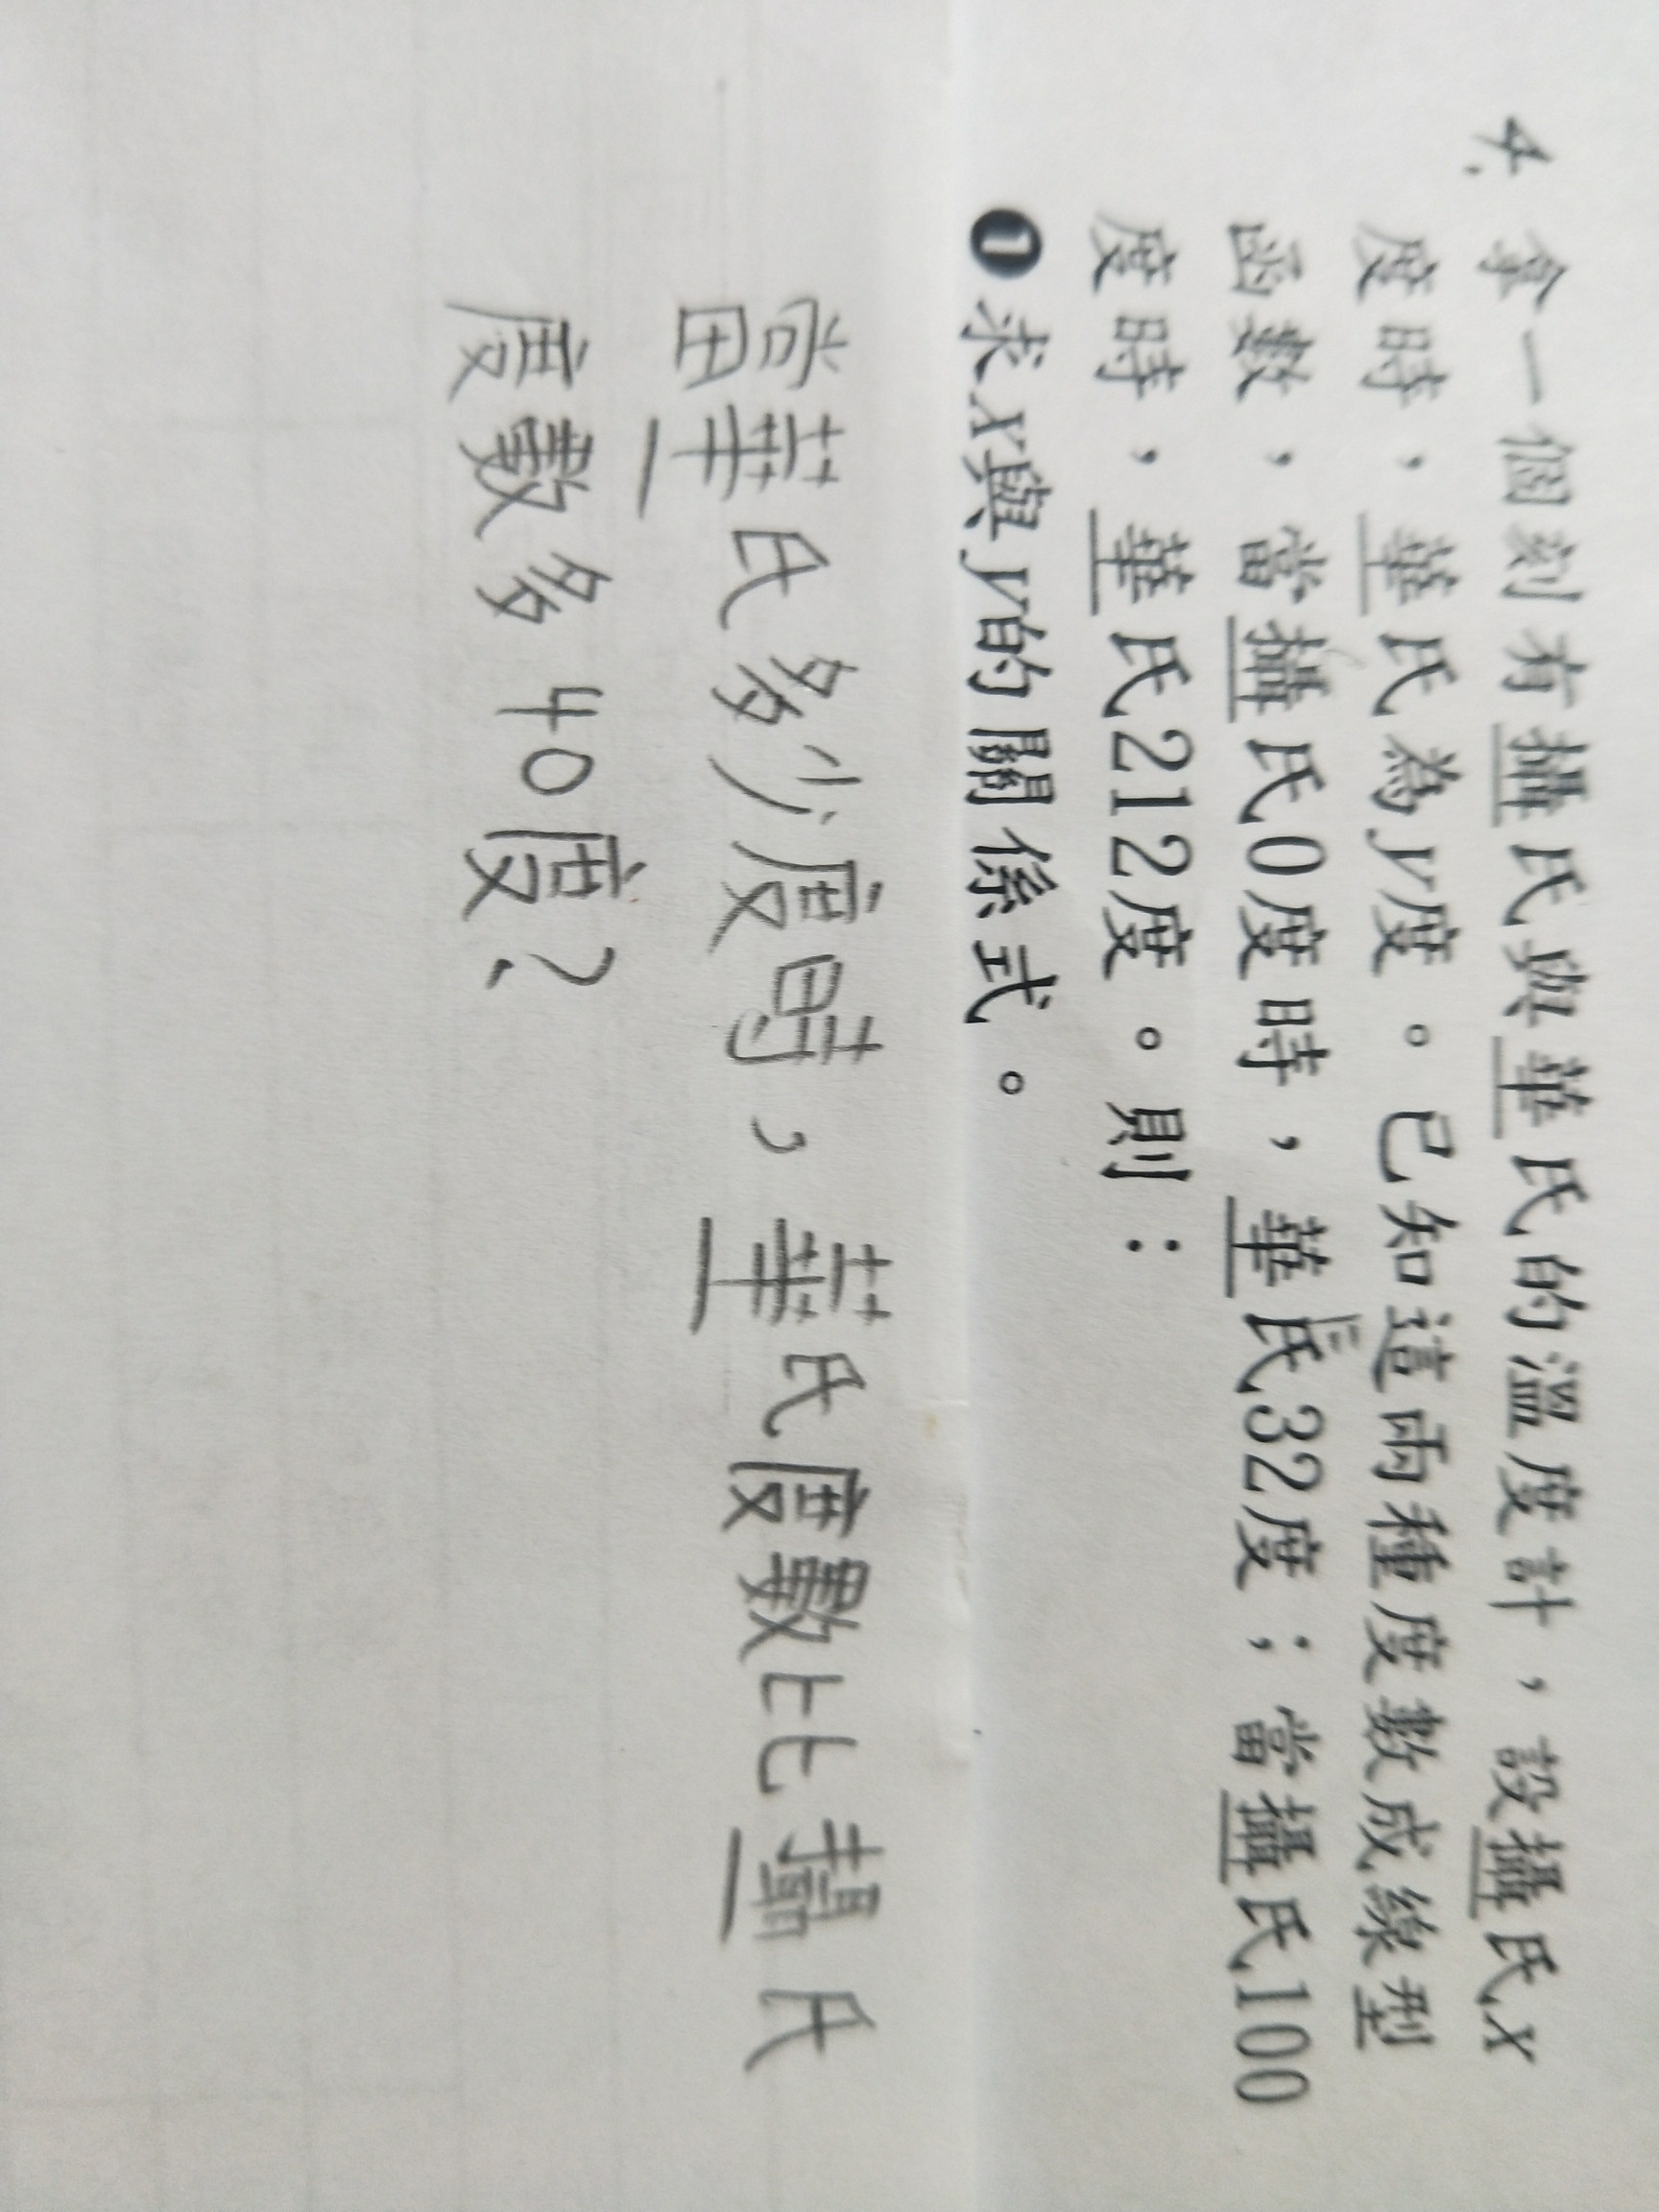 4. 拿一個刻有攝氏與華氏的溫度計，設攝氏x
度時，華氏為y度。已知這兩種度數成線型
函數，當攝氏0度時，華氏32度；當攝氏100
度時，華氏212度。則：
❶求x與y的關係式。
當華氏多少度時，華氏度數比攝氏
度數多40度？